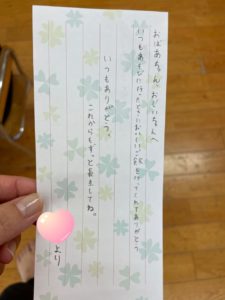 おばあちゃん、おじいちゃんへ
いつもあそびに行ったときにおいしいご飯を作ってくれてありがとう
いつもありがとう。
これからもずっと長生してね。
より